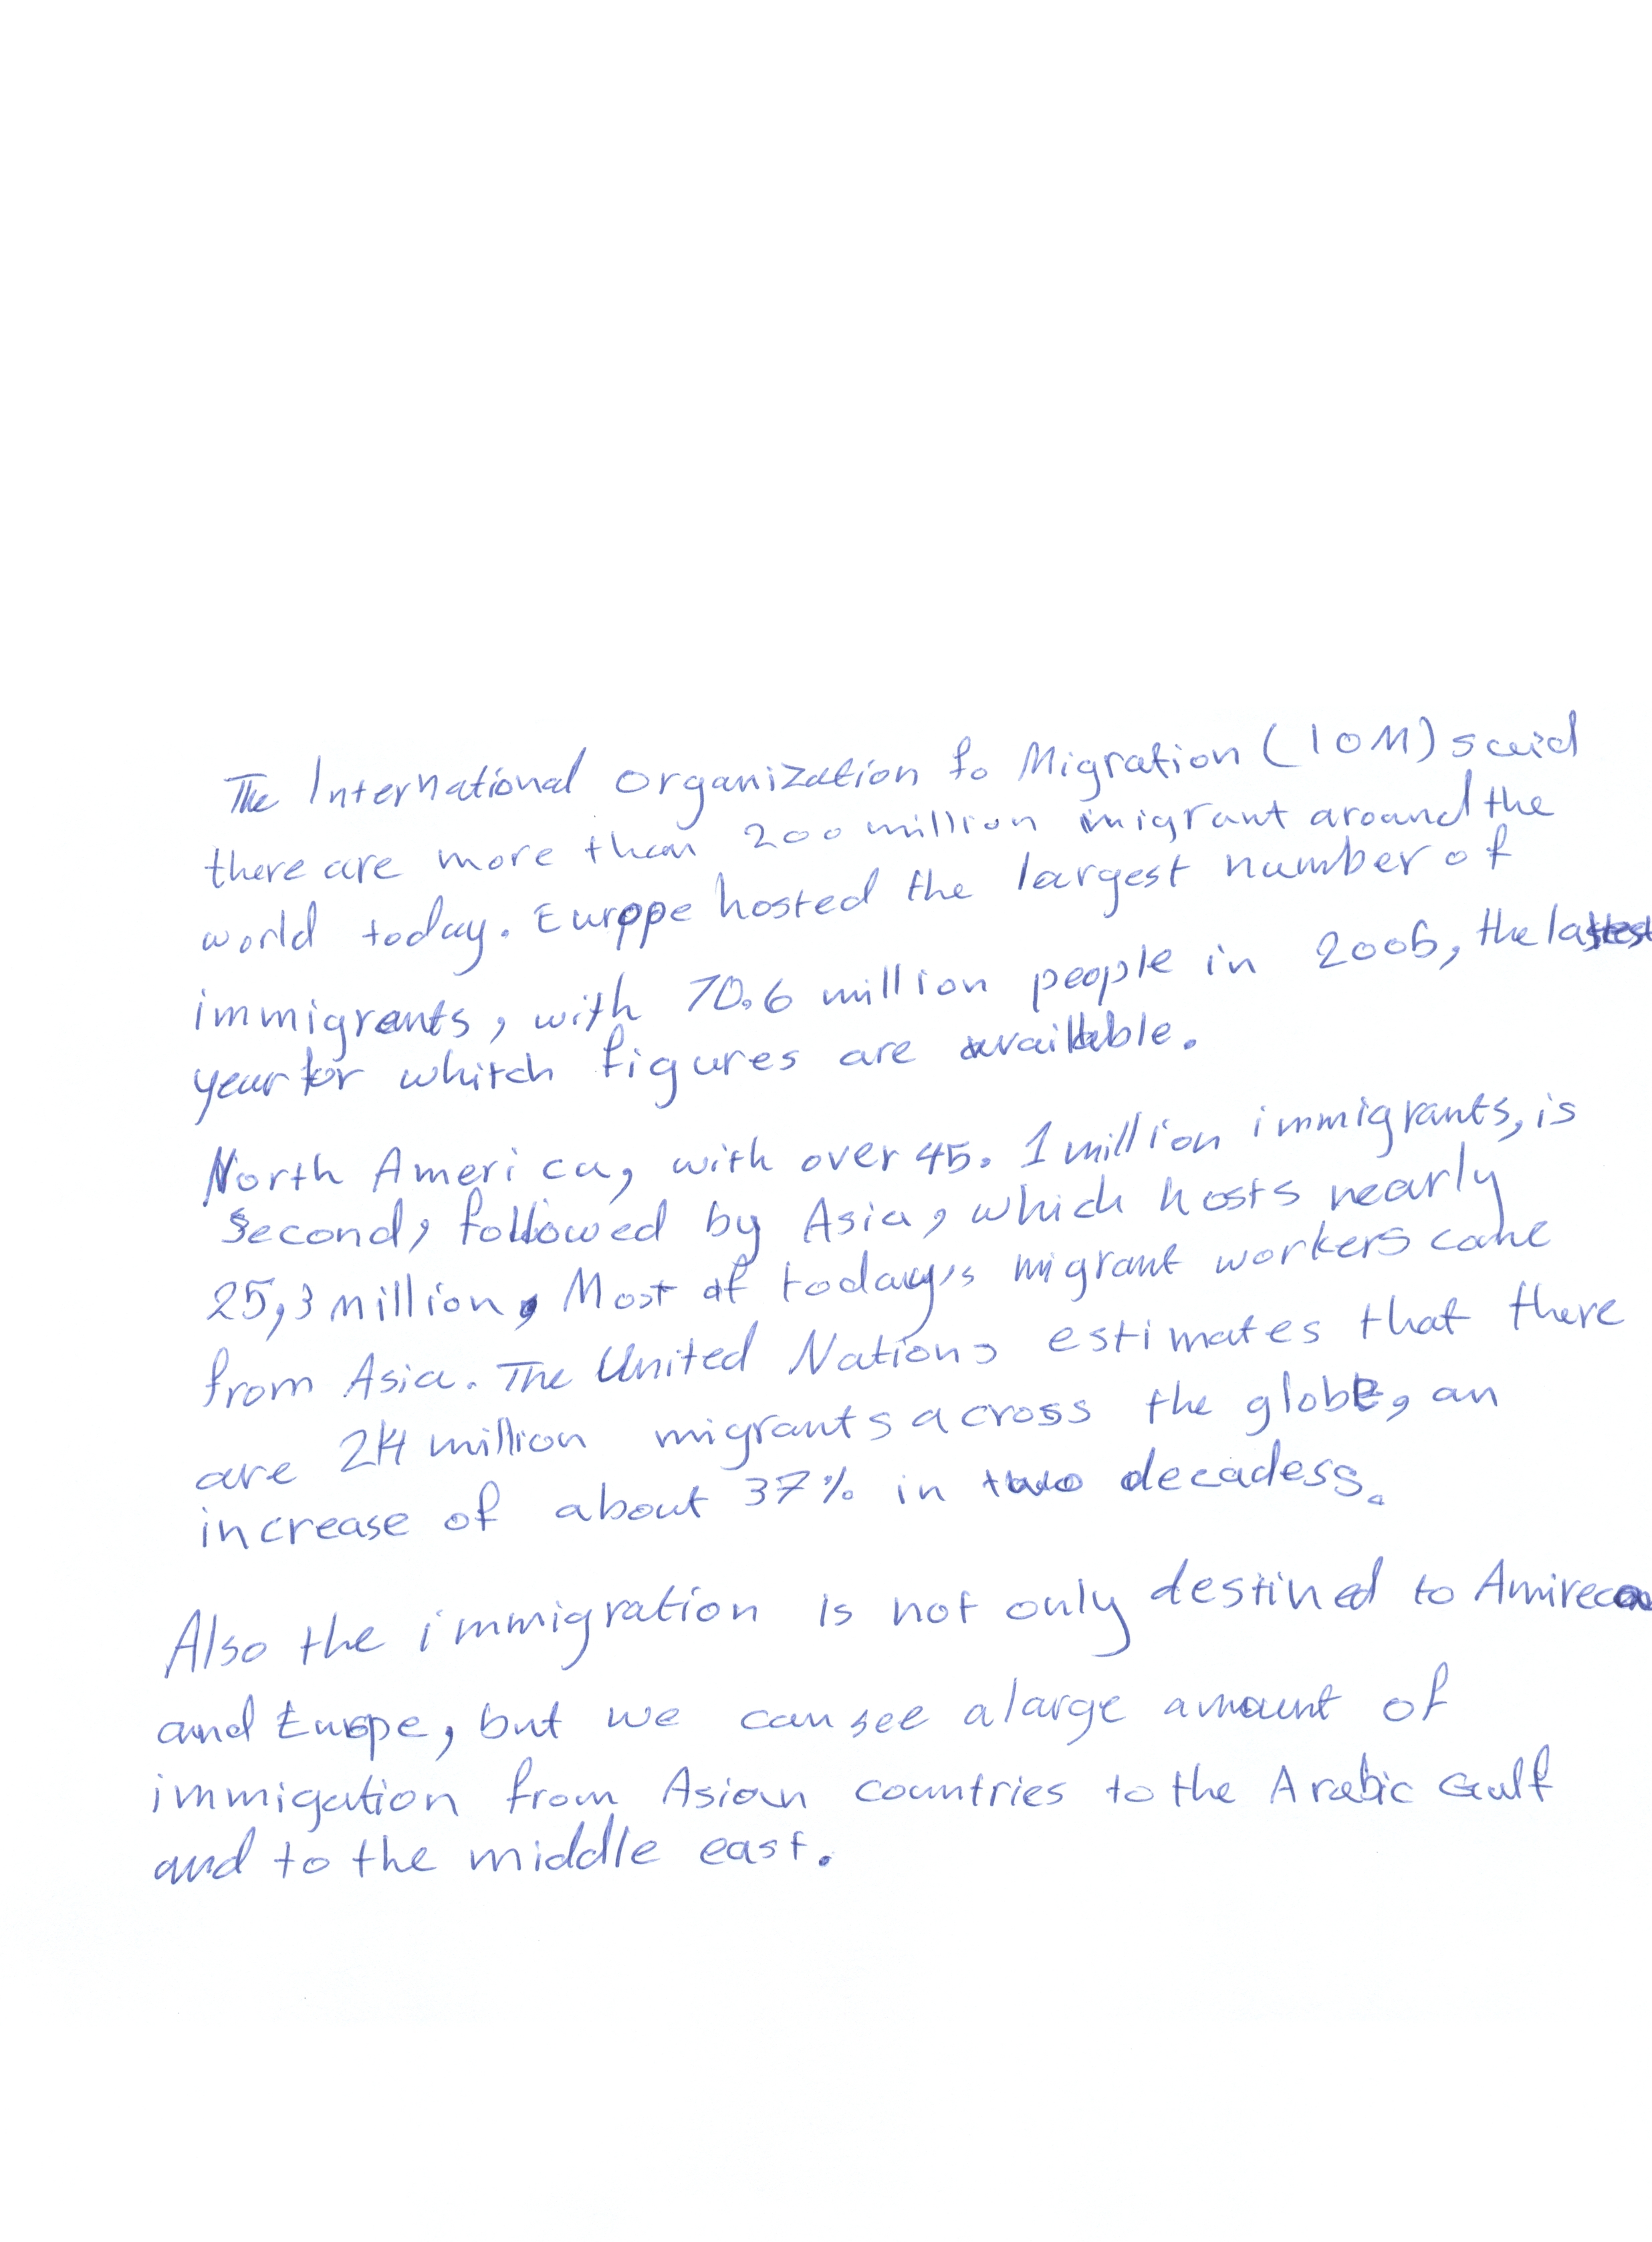 The International organization fo Migration (IOM) said
there are more than 200 million imigrant around the
world today. Europpe hosted the largest number of
immigrants, with 70.6 million people in 2006, the lastest
year for whitch figures are available.
North America, with over 45. 1 million immigrants, is
second, followed by Asia, which hosts nearly
25,3 million, Most of today's migrant workers come
from Asia. The United Nations estimates that there
are 214 million migrants across the globe, an
increase of about 37% in two decadess.
Also the immigration is not only destined to Amireca
and Europe, but we can see a large amount of
immigation from Asian countries to the Arabic Gulf
and to the middle east.